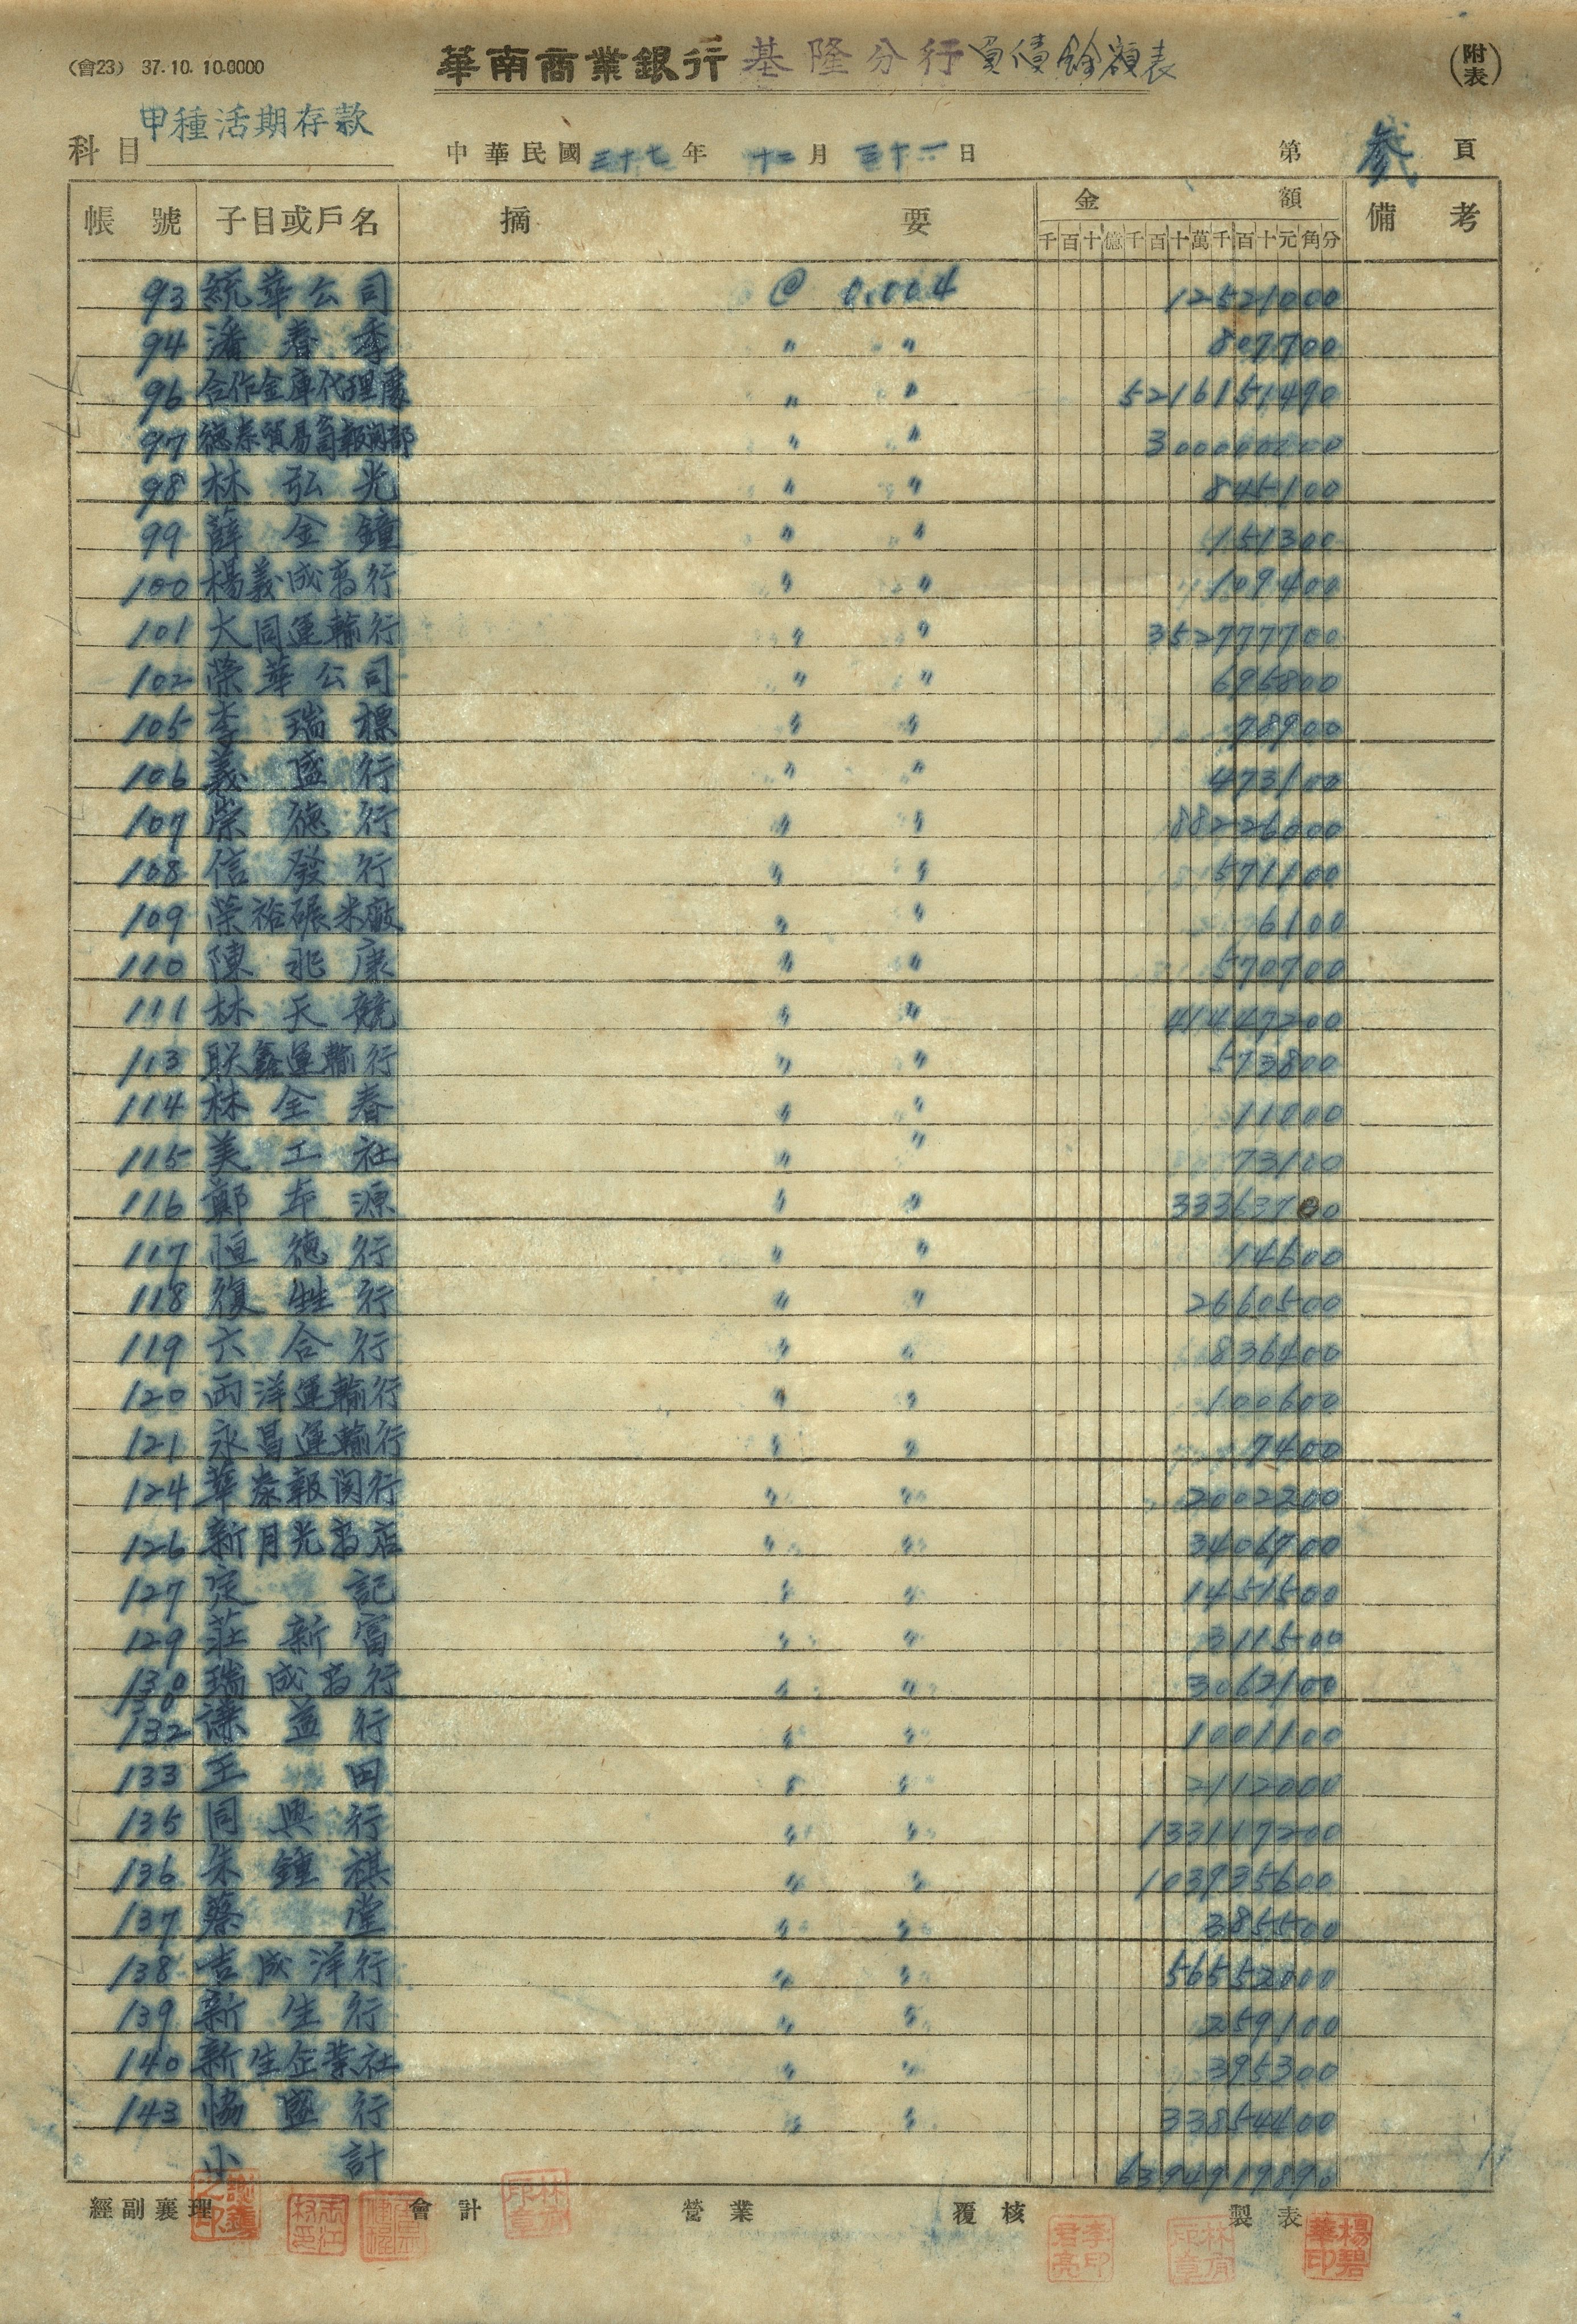 (會23) 37.10.10.0000
華南商業銀行 基隆分行 負債餘額表
(附表)
科目 甲種活期存款
中華民國 三十七 年 十二 月 三十一 日
第 叁 頁
帳號 子目或戶名 摘要 金額 備考
千百十億千百十萬千百十元角分
93 統華公司 @ 0.004 12521000
94 潘春季 〃 〃 807700
96 合作金庫代理處 〃 〃 5216151490
97 德泰貿易公司報関部 〃 〃 300000000
98 林弘光 〃 〃 845100
99 薛金鐘 〃 〃 151300
100 楊義成商行 〃 〃 109400
101 大同運輸行 〃 〃 352777700
102 榮華公司 〃 〃 695800
105 李瑞標 〃 〃 78900
106 義盛行 〃 〃 473100
107 崇德行 〃 〃 88226000
108 信發行 〃 〃 571100
109 榮裕碾米廠 〃 〃 6100
110 陳兆康 〃 〃 570700
111 林天競 〃 〃 41447200
113 联鑫運輸行 〃 〃 573800
114 林全春 〃 〃 11000
115 美工社 〃 〃 73100
116 鄭年源 〃 〃 33363700
117 恒德行 〃 〃 14600
118 復生行 〃 〃 2660500
119 六合行 〃 〃 836400
120 両洋運輸行 〃 〃 100600
121 永昌運輸行 〃 〃 7400
124 華泰報関行 〃 〃 2002200
126 新月光商店 〃 〃 3406700
127 定記 〃 〃 1451500
129 莊新富 〃 〃 311500
130 瑞成商行 〃 〃 3062100
132 謙益行 〃 〃 1001100
133 玉田 〃 〃 2112000
135 同興行 〃 〃 133117200
136 朱鍾祺 〃 〃 103935600
137 蔡堂 〃 〃 385500
138 吉成洋行 〃 〃 56552000
139 新生行 〃 〃 259100
140 新生企業社 〃 〃 395300
143 協盛行 〃 〃 33854400
小計 6394919890
經副襄理 會計 營業 覆核 製表
李君亮印
楊碧華印